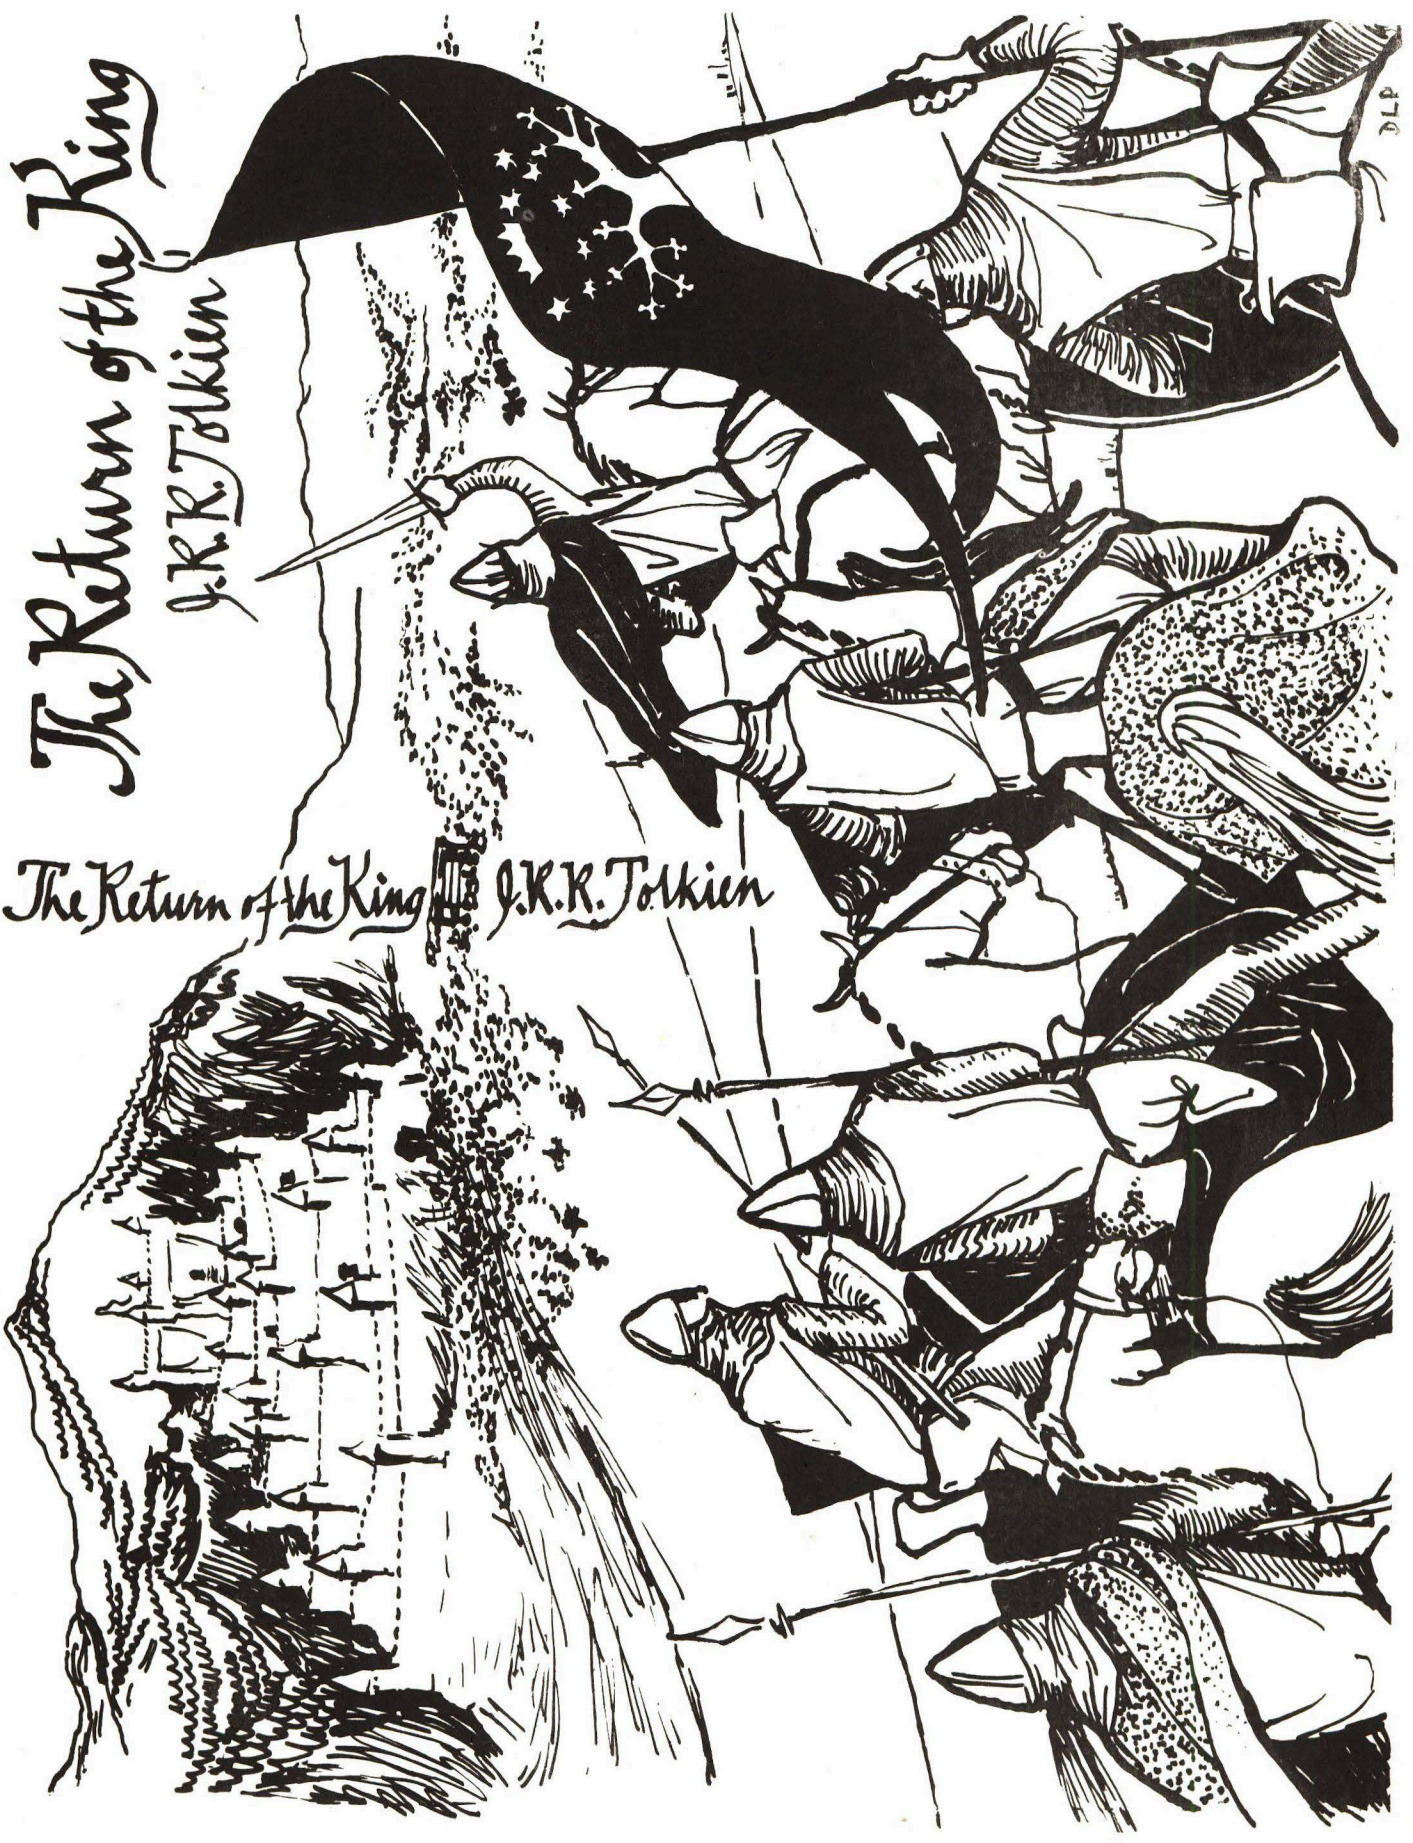 The Return of the King
J.R.R. Tolkien
The Return of the King J.R.R. Tolkien
DLP